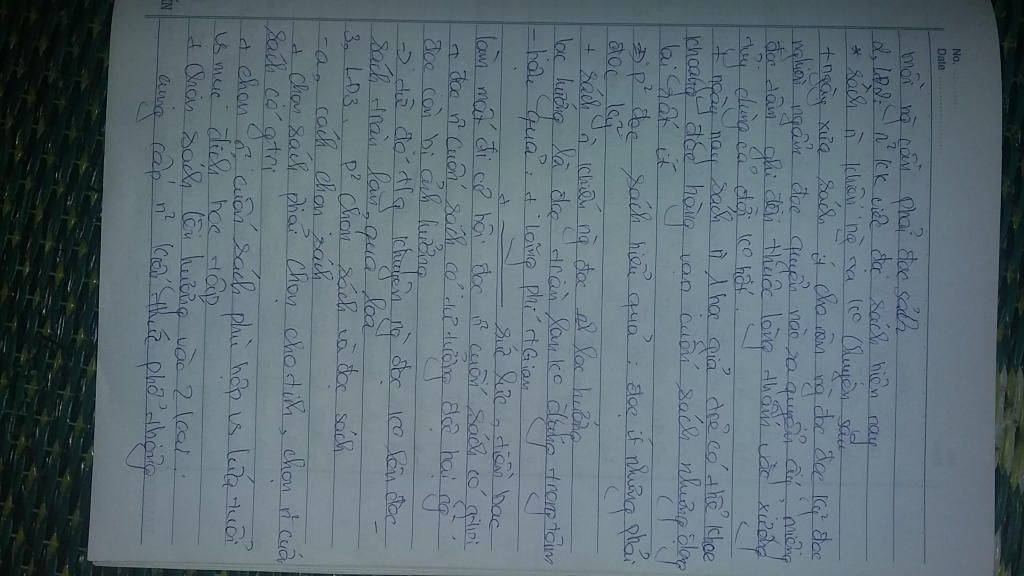 No.
Date
mỗi ng cần phải đọc sách
2, LĐ2: n² kk việc đọc sách hiện nay
* sách n khiến ng ta ko chuyên sâu
+ ngày xưa sách ít cho nên ng đọc đọc kỹ đọc
nghiền ngẫm đọc quyển nào ra quyển ấy, miệng
đọc tâm ghi đến thuộc lòng thấm vào xương
tủy dùng cả đời ko hết.
+ ngày nay sách n học giả trẻ có thể khoe
khoang đọc hàng vạn cuốn sách nhưng đọng
lại rất ít
=> p² đọc sách hiệu quả: đọc ít nhưng phải
đọc kỹ
+ sách n khiến ng đọc dễ lạc hướng
lạc hướng là đọc tràn lan ko đúng trọng tâm
- hậu quả: + lãng phí tgian
+ sức lực, tiền bạc
làm mất đi cơ hội đọc n² cuốn sách có gtrị
+ đọc n² cuốn sách có tư tưởng độc hại ng
đọc còn bị ảnh hưởng
-> từ đó tg khuyên ng đọc ko lên đọc
sách tràn lan, qua loa
3, LĐ3. p² chọn sách và đọc sách
- a, cách chọn sách
+ chọn sách phải chọn cho tinh, chọn n² cuốn
sách có gtrị
+ chọn n² cuốn sách phù hợp vs lứa tuổi
vs mục đích học tập
+ Chọn sách lên hướng vào 2 loại:
cung cấp n² kiến thức phổ thông